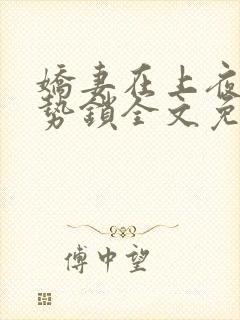 嬌妻在上夜
勢鎖全文免
傅中望